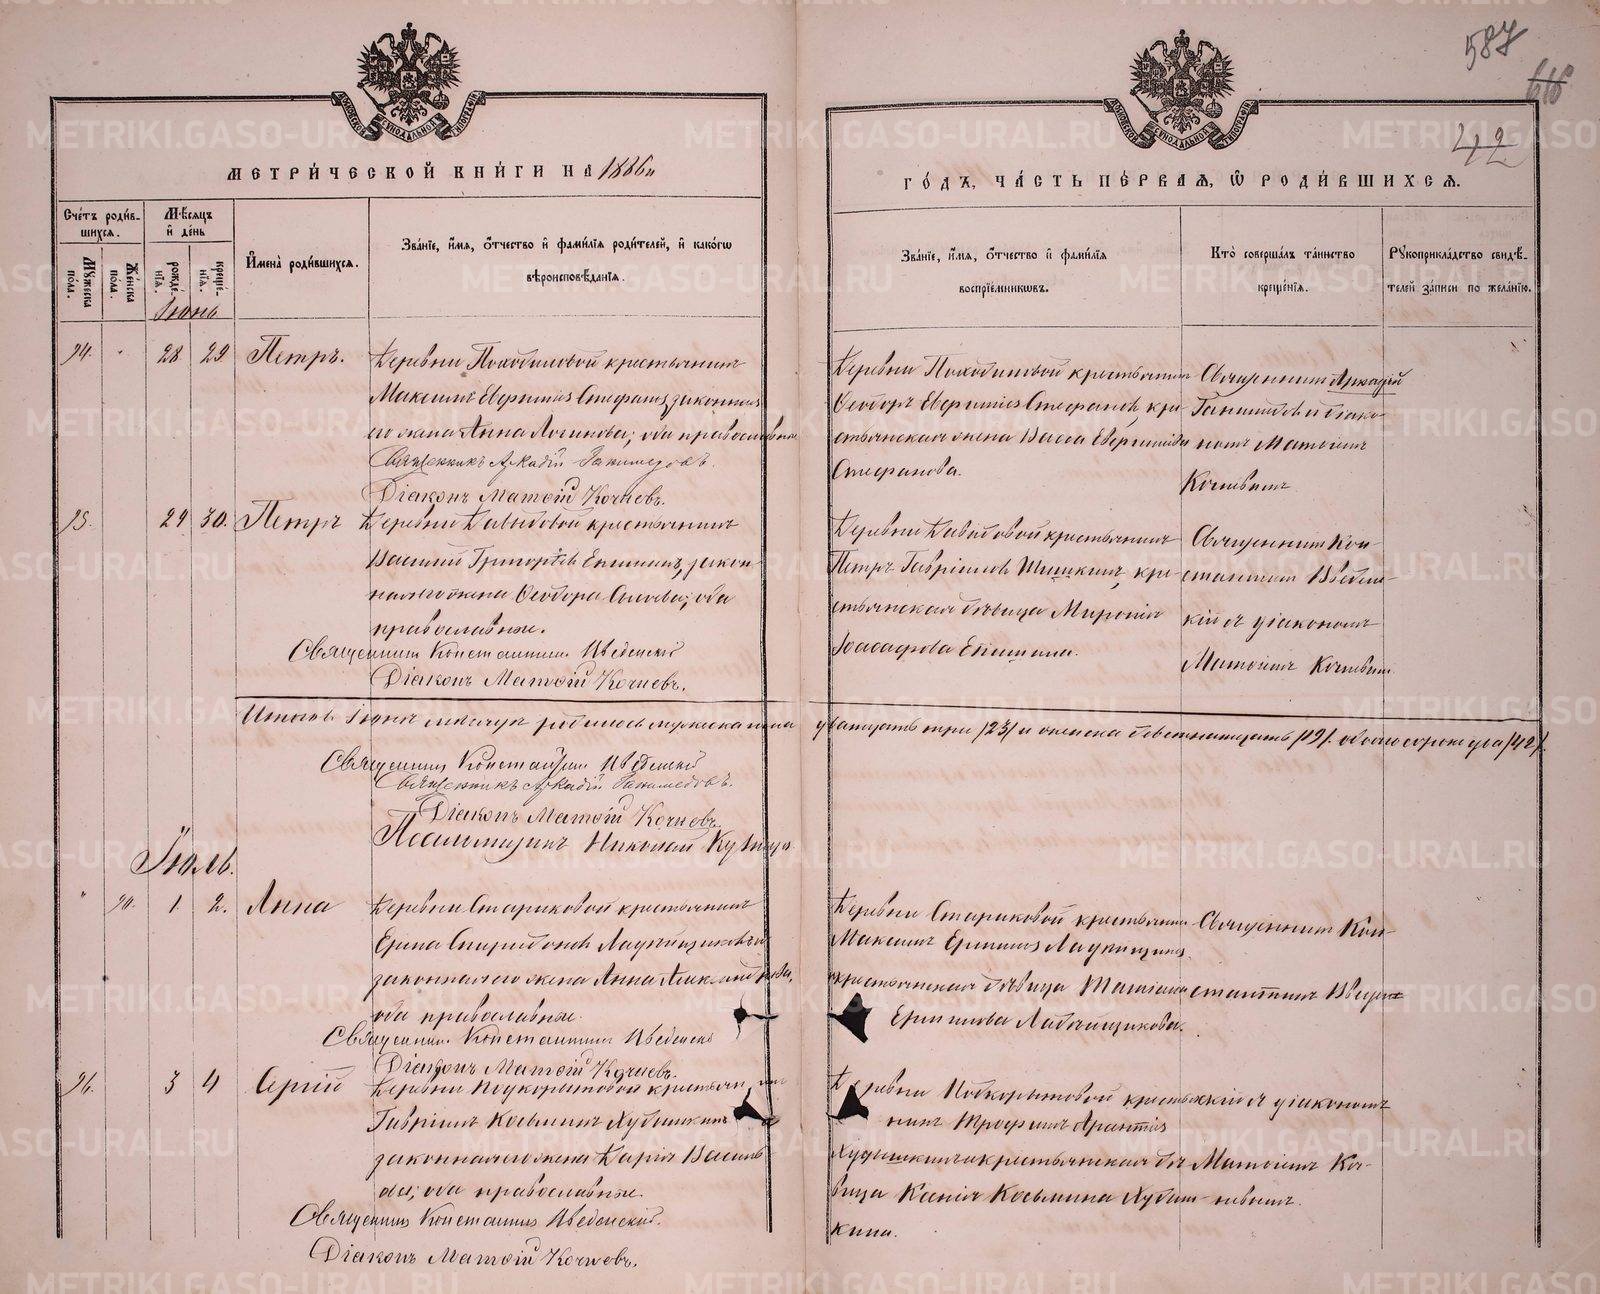 587
616
42
МЕТРИ́ЧЕСКОЙ КНИ́ГИ НА 1886й
ГО́ДЪ, ЧА́СТЬ ПЕ́РВАЯ, Ѡ РОДИ́ВШИХСЯ.
Сче́тъ роди́в-
шихся.
Мѣ́сяцъ
и҆ де́нь
Мꙋ́жеска
по́ла.
Же́нска
по́ла.
рожде́-
нїѧ.
креще́-
нїѧ.
И҆мена̀ роди́вшихся.
Зва́нїе, и҆́мѧ, ѻ҆́тчество и҆ фами́лїѧ роди́телей, и҆ како́гѡ
вѣроисповѣ́данїѧ.
Зва́нїе, и҆́мѧ, ѻ҆́тчество и҆ фами́лїѧ
воспрїе́мникѡвъ.
Кто̀ соверша́лъ та́инство
креще́нїѧ.
Рꙋкоприкла́дство свидѣ́-
телей за́писи по жела́нїю.
Іюнь
94. " 28 29 Петръ.
Деревни Походиловой крестьянинъ
Максимъ Евфиміевъ Стефановъ, законная
его жена Анна Логинова; оба православные
Священникъ Аркадій Ганимедовъ.
Діаконъ Матѳій Кочневъ.
Деревни Походиловой крестьянинъ
Ѳеодоръ Евфиміевъ Стефановъ, кре-
стьянская жена Васса Евфиміева
Стефанова.
Священникъ Аркадій
Ганимедовъ и діако-
номъ Матѳіемъ
Кочневымъ
95. 29 30. Петръ
Деревни Давыдовой крестьянинъ
Василій Григорьевъ, закон-
ная его жена Ѳеодора; оба
православные.
Священникъ Константинъ Введенскій
Діаконъ Матѳій Кочневъ.
Деревни Давыдовой крестьянинъ
Петръ Гавріиловъ Шишкинъ, кре-
стьянская дѣвица Миропія
Іоасафова
Священникъ Кон-
стантинъ Введен-
скій съ діакономъ
Матѳіемъ Кочневымъ.
Итого въ Іюнѣ мѣсяцѣ родилось мужеска пола двадцать три /23/ и женска девятнадцать /19/. обоего сорокъ два /42/.
Священникъ Константинъ Введенскій
Священникъ Аркадій Ганимедовъ.
Діаконъ Матѳій Кочневъ.
Псаломщикъ Николай
Іюль.
" 90. 1. 2. Анна
Деревни Стариковой крестьянинъ
Спиридоновъ Ладейщиковъ и
законная его жена Анна
оба православные.
Священникъ Константинъ Введенскій
Діаконъ Матѳій Кочневъ.
Деревни Стариковой крестьянинъ
Максимъ Ладейщиковъ
и крестьянская дѣвица Татіана
Ладейщикова.
Священникъ Кон-
стантинъ Введен-
96. 3 4 Сергій
Деревни Подкорытовой крестьянинъ
Гавріилъ Косьминъ Худышкинъ
законная его жена Дарія Василь-
ева; оба православные.
Священникъ Константинъ Введенскій.
Діаконъ Матѳій Кочневъ.
Деревни Подкорытовой крестья-
нинъ Трофимъ
Худышкинъ и крестьянская дѣ-
вица Ксенія Косьмина Худыш-
кина.
скій съ діакономъ
Матѳіемъ Коч-
невымъ.
METRIKI.GASO-URAL.RU